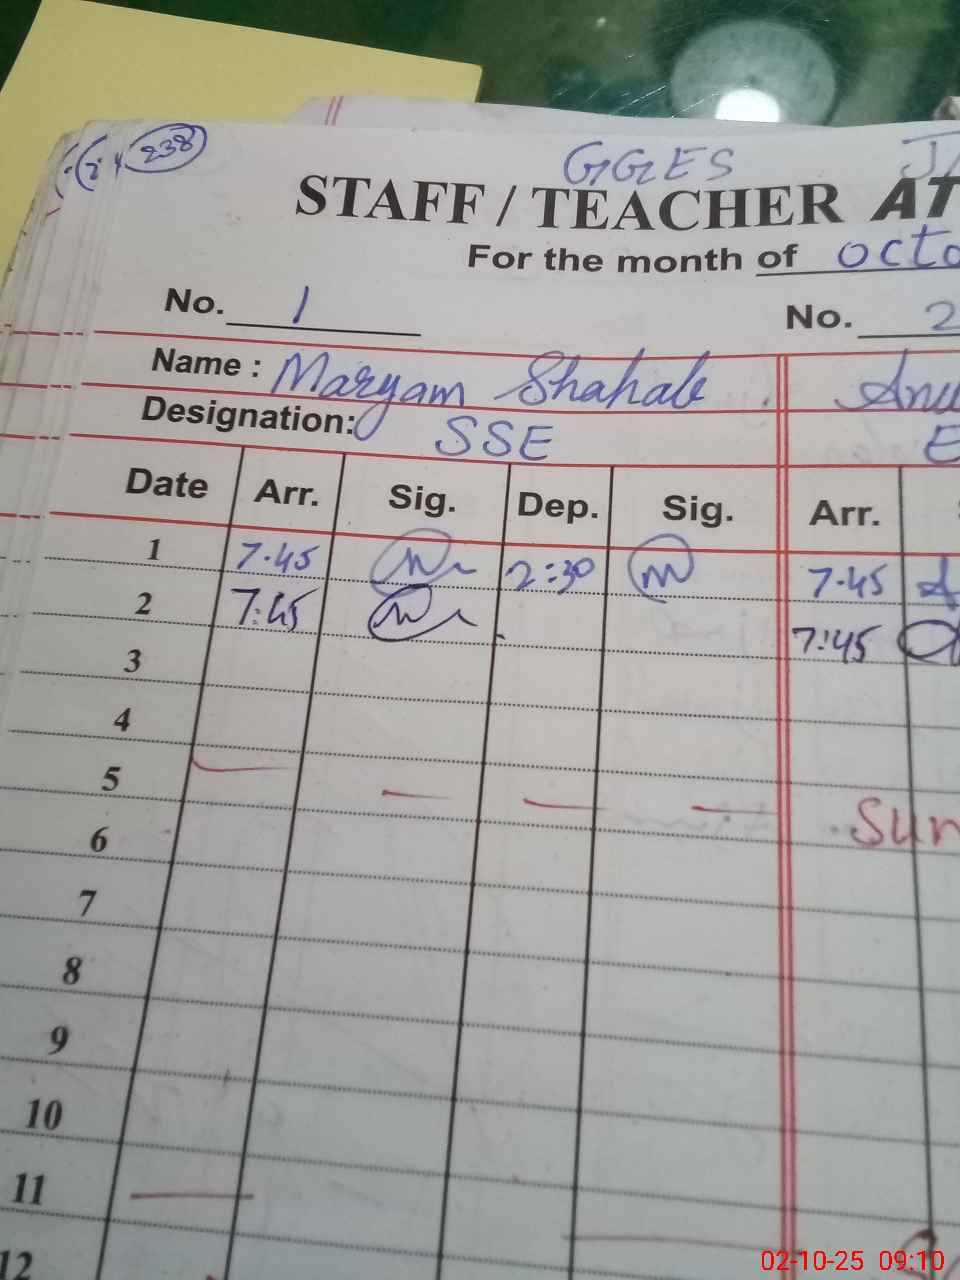 238
GGES
STAFF / TEACHER AT
For the month of octo
No. 1 No. 2
Name : Maryam Shahab
Designation: SSE E
Date Arr. Sig. Dep. Sig. Arr.
1 7.45 2:30 7.45
2 7:45 7:45
3
4
5 Sun
6
7
8
9
10
11
12
02-10-25 09:10